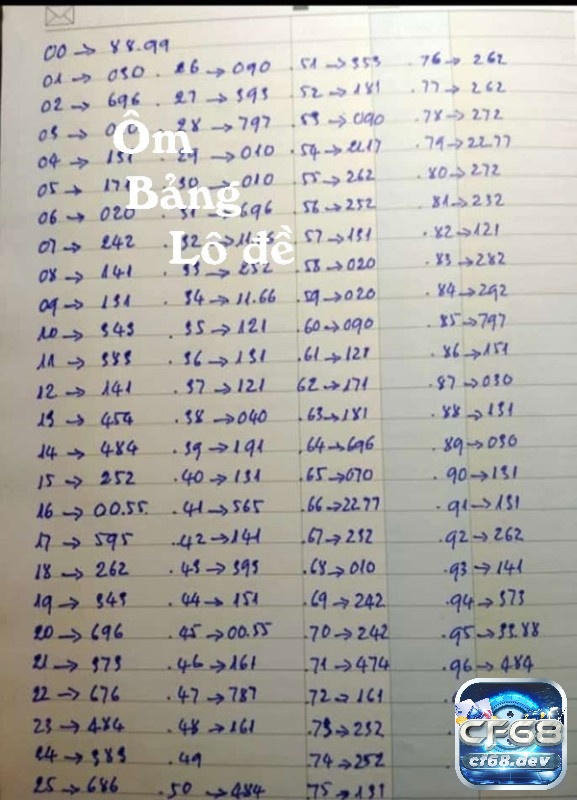 00 → 88.99
01 → 030
02 → 696
03 →
04 → 131
05 → 171
06 → 020
07 → 242
08 → 141
09 → 131
10 → 343
11 → 383
12 → 141
13 → 454
14 → 484
15 → 252
16 → 00.55.
17 → 595
18 → 262
19 → 343
20 → 696
21 → 373
22 → 676
23 → 484
24 → 383
25 → 686
. 26 → 090
. 27 → 393
. 28 → 797
. 29 → 010
30 → 010
31 → 696
. 32 →
. 33 → 252
. 34 → 11.66
. 35 → 121
. 36 → 131
. 37 → 121
. 38 → 040
. 39 → 191
. 40 → 131
. 41 → 565
. 42 → 141
. 43 → 393
. 44 → 151
. 45 → 00.55
. 46 → 161
. 47 → 787
. 48 → 161
. 49
. 50 → 484
. 51 → 353
. 52 → 181
. 53 → 090
. 54 →
. 55 → 262
. 56 → 252
. 57 → 131
. 58 → 020
. 59 → 020
. 60 → 090
. 61 → 121
62 → 171
. 63 → 181
. 64 → 696
. 65 → 070
. 66 → 22.77
. 67 → 232
. 68 → 010
. 69 → 242
. 70 → 242
. 71 → 474
. 72 → 161
. 73 → 232
. 74 → 252
. 75 → 131
. 76 → 262
. 77 → 262
. 78 → 272
. 79 → 22.77
. 80 → 272
. 81 → 232
. 82 → 121
. 83 → 282
. 84 → 292
. 85 → 797
. 86 → 151
. 87 → 030
. 88 → 131
. 89 → 030
. 90 → 131
. 91 → 131
. 92 → 262
. 93 → 141
. 94 → 373
. 95 → 33.88
. 96 → 484
Ôm
Bảng
Lô đề
CF68
cf68.dev